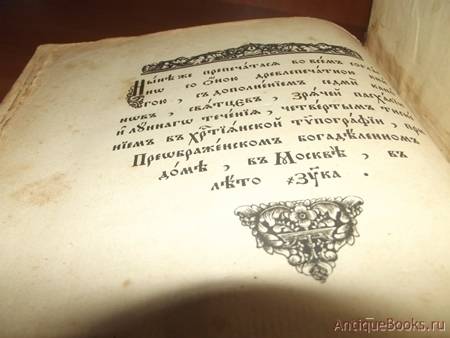 Ны́нѣ же препеча́тася во всемъ сог
но со о́ною древлепеча́тною кни
гою, съ дополне́нїемъ седми́ кано
новъ, свѧ́тцевъ, зря́чей пасха́лїи
и҆ лу́ннагѡ тече́нїѧ, четве́ртымъ тисне
нїемъ въ хрⷭ҇тїа́нской тѷпогра́фїи, при
Преѡбраже́нскомъ богадѣ́ленномъ
до́мѣ, въ Москвѣ̀, въ
лѣ́то ҂зѵ҃ка.
AntiqueBooks.ru